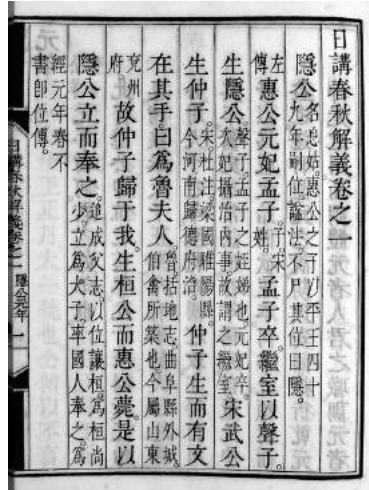 日講春秋解義卷之一
隱公名息姑。惠公之子。以平王四十九年嗣位。諡法。不尸其位曰隱。
左傳惠公元妃孟子。子。宋姓。孟子卒。繼室以聲子。
生隱公。聲子。孟子之姪娣也。元妃卒。次妃攝治內事。故謂之繼室。宋武公
生仲子。宋。杜注。梁國睢陽縣。今河南歸德府治。仲子生而有文
在其手。曰爲魯夫人。魯。括地志。曲阜縣外城。伯禽所築也。今屬山東
兗州府。故仲子歸于我。生桓公而惠公薨。是以
隱公立而奉之。追成父志。以位讓桓。爲桓尚少。立爲太子。率國人奉之。爲
經元年春不書即位傳。
日講春秋解義卷之一 隱公元年 一